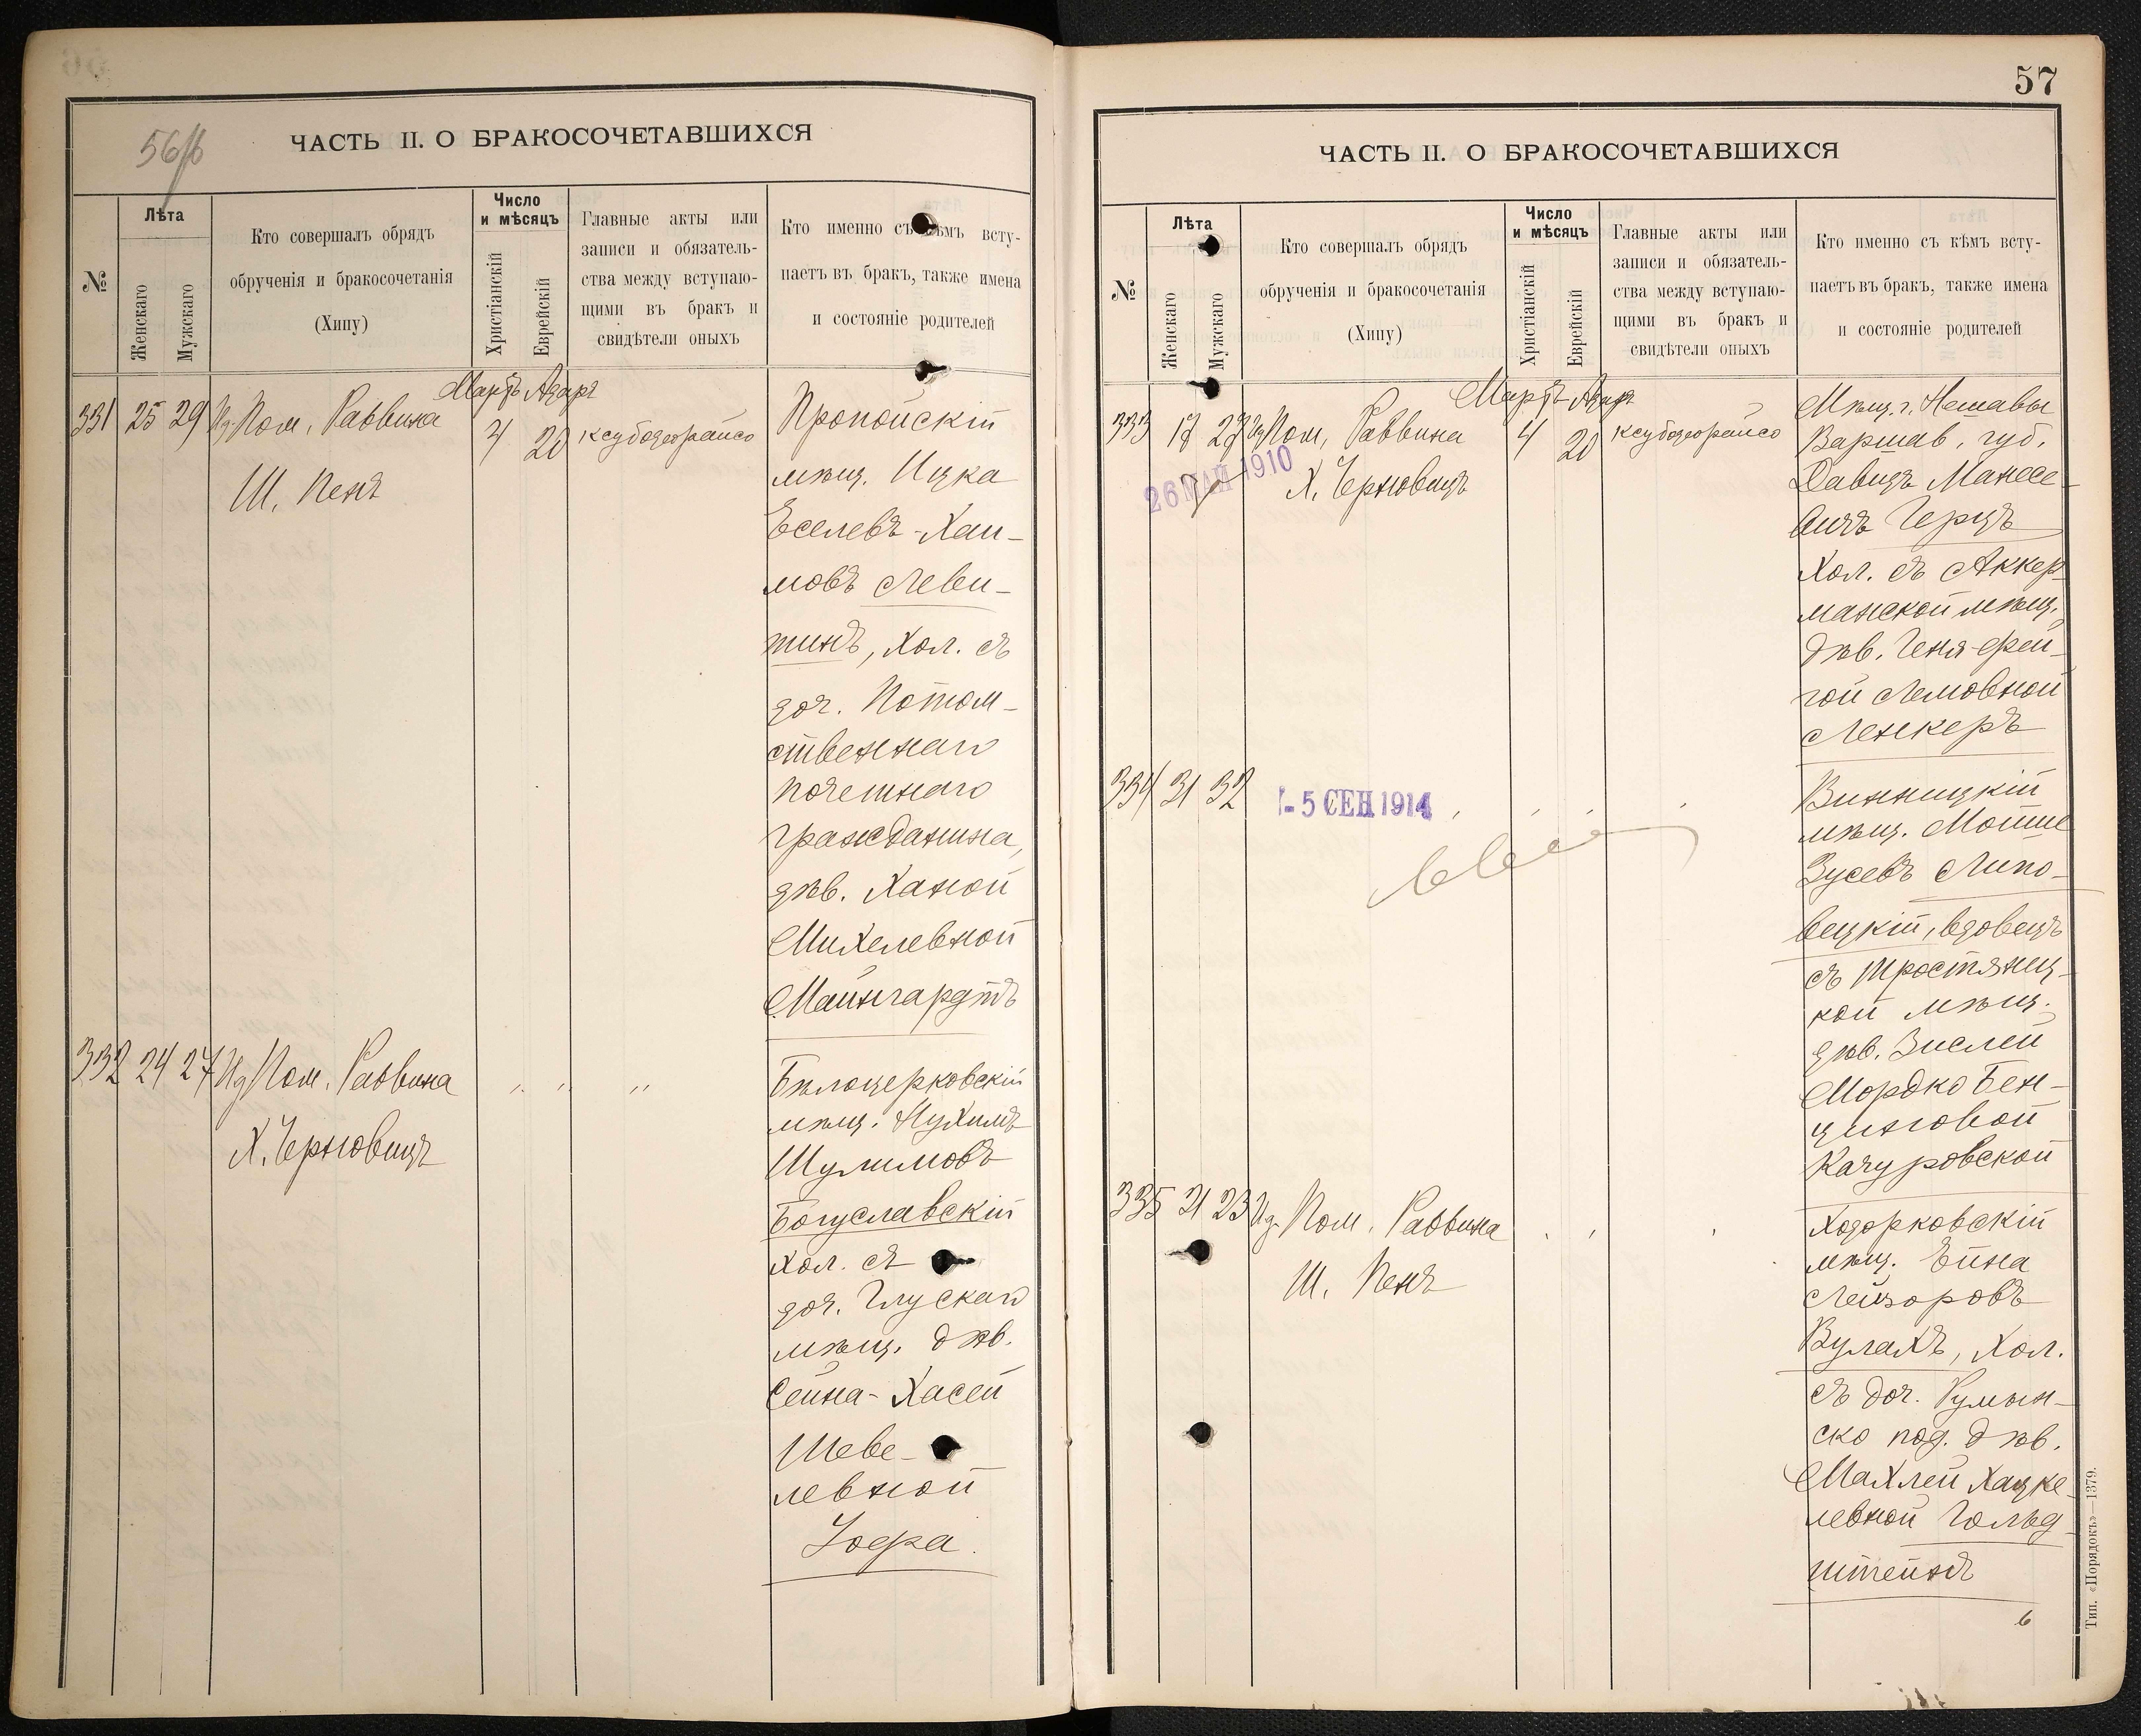 56/б
ЧАСТЬ II. О БРАКОСОЧЕТАВШИХСЯ
№
Лѣта
Женскаго
Мужскаго
Кто совершалъ обрядъ
обрученія и бракосочетанія
(Хипу)
Число
и мѣсяцъ
Христіанскій
Еврейскій
Главные акты или
записи и обязатель-
ства между вступаю-
щими въ бракъ и
свидѣтели оныхъ
Кто именно съ кѣмъ всту-
паетъ въ бракъ, также имена
и состояніе родителей
331 25 29 Из. Пом. Раввина
Ш. Пенъ
Мартъ Адаръ
4 20
ксубодеорайсо
Пропойскій
мѣщ. Ицка
Еселевъ-Хаи-
мовъ Леви-
тинъ, хол. съ
доч. Потом-
ственнаго
почетнаго
гражданина,
дѣв. Ханой
Михелевной
Майнгардтъ
332 24 27 Из Пом. Раввина
Х. Черновицъ
" " "
Бѣлоцерковскій
мѣщ. Нухимъ
Шулимовъ
Богуславскій
хол. съ
доч. Глускаго
мѣщ. дѣв.
Сейна-Хасей
Шеве-
левной
Зофа.
57
ЧАСТЬ II. О БРАКОСОЧЕТАВШИХСЯ
№
Лѣта
Женскаго
Мужскаго
Кто совершалъ обрядъ
обрученія и бракосочетанія
(Хипу)
Число
и мѣсяцъ
Христіанскій
Еврейскій
Главные акты или
записи и обязатель-
ства между вступаю-
щими въ бракъ и
свидѣтели оныхъ
Кто именно съ кѣмъ всту-
паетъ въ бракъ, также имена
и состояніе родителей
333 17 27 Из Пом. Раввина
26 МАЙ 1910
Х. Черновицъ
Мартъ Адаръ
4 20
ксубодеорайсо
Мѣщ. г. Нешавы
Варшав. губ.
Давидъ Манесе-
вичъ Герцъ
Хол. съ Аккер-
манской мѣщ.
дѣв. Геня-Фей-
гой Лемовной
Ленкеръ
334 31 32
- 5 СЕН 1914
Винницкій
мѣщ. Мойше
Зусевъ Липо-
вецкій, вдовецъ
съ Тростянец-
кой мѣщ.
дѣв. Зислей
Мордко Бен-
ціновой
Качуровской
335 21 23 Из. Пом. Раввина
Ш. Пенъ
Ходорковскій
мѣщ. Ейна
Лейзоровъ
Вулахъ, Хол.
съ доч. Румын-
ско под. дѣв.
Махлей Хацке-
левной Гольд-
штейнъ
Тип. «Порядокъ»—1379.